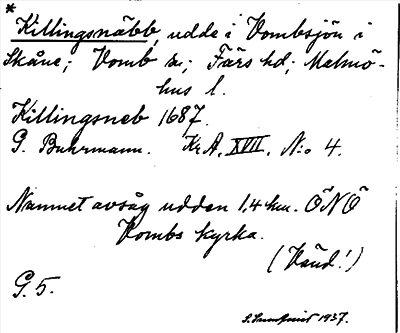 *
Killingsnäbb, udde i Vombsjön i
Skåne; Vomb sn; Färs hd; Malmö-
hus l.
Killingsneb 1687.
G. Buhrmann. KrA. XVII. N:o 4.
Namnet avsåg udden 1,4 km. ÖNÖ
Vombs kyrka.
(Vänd!)
G. 5.
1937.